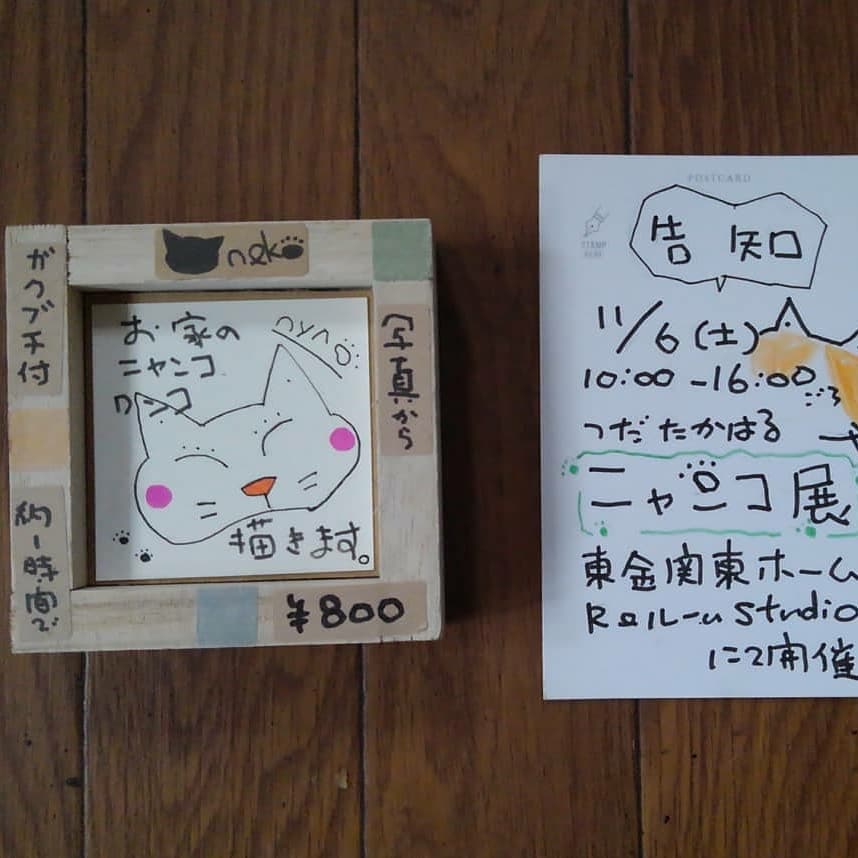 neko
ガクブチ付
約1時間で
写真から
¥800
お家の
ニャンコ
ワンコ
nyno
描きます。
POSTCARD
STAMP
告知
11/6(土)
10:00-16:00
つだたかはる
ニャンコ展
東金関東ホーム
Studio
にて開催